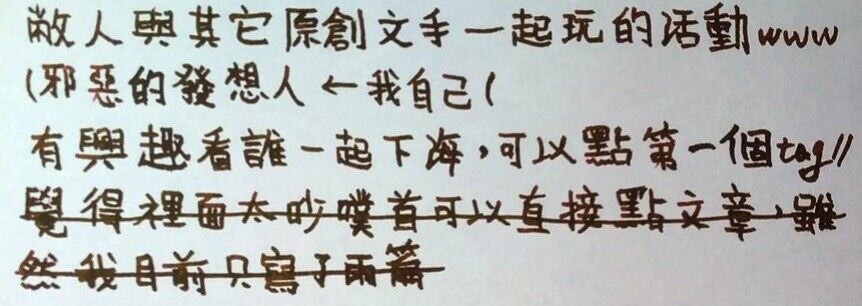 敝人與其它原創文手一起玩的活動www
(邪惡的發想人←我自己(
有興趣看誰一起下海,可以點第一個tag//
覺得裡面太吵噗首可以直接點文章,雖
然我目前只寫了兩篇